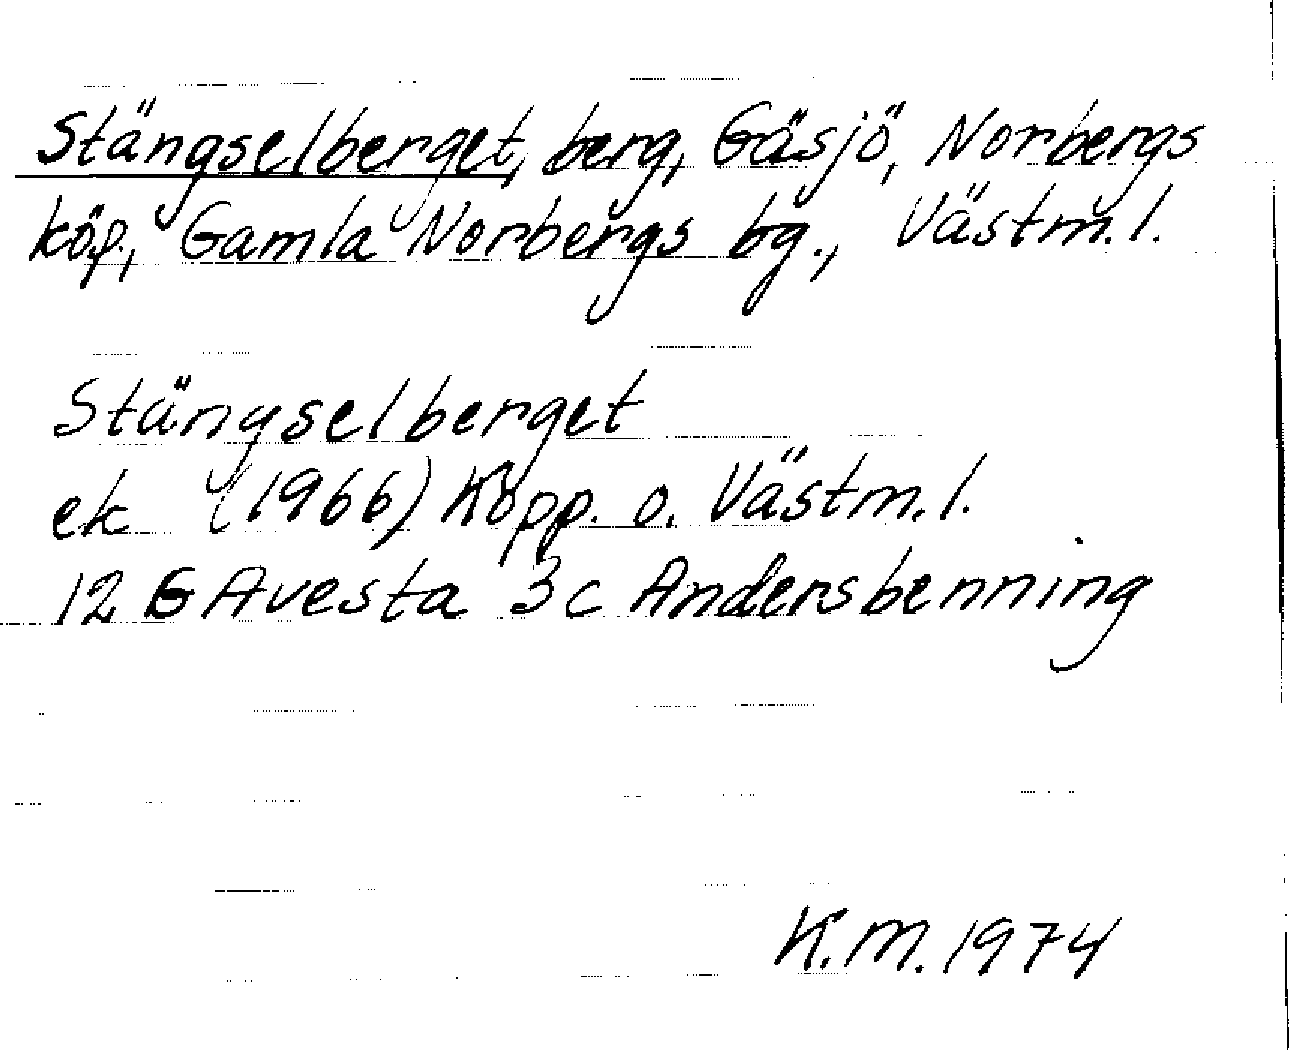 Stängselberget, berg, Gäsjö, Norbergs
köp., Gamla Norbergs bg., Västm.l.
Stängselberget
ek (1966) Kopp. o. Västm.l.
12 G Avesta 3c Andersbenning
K.M. 1974